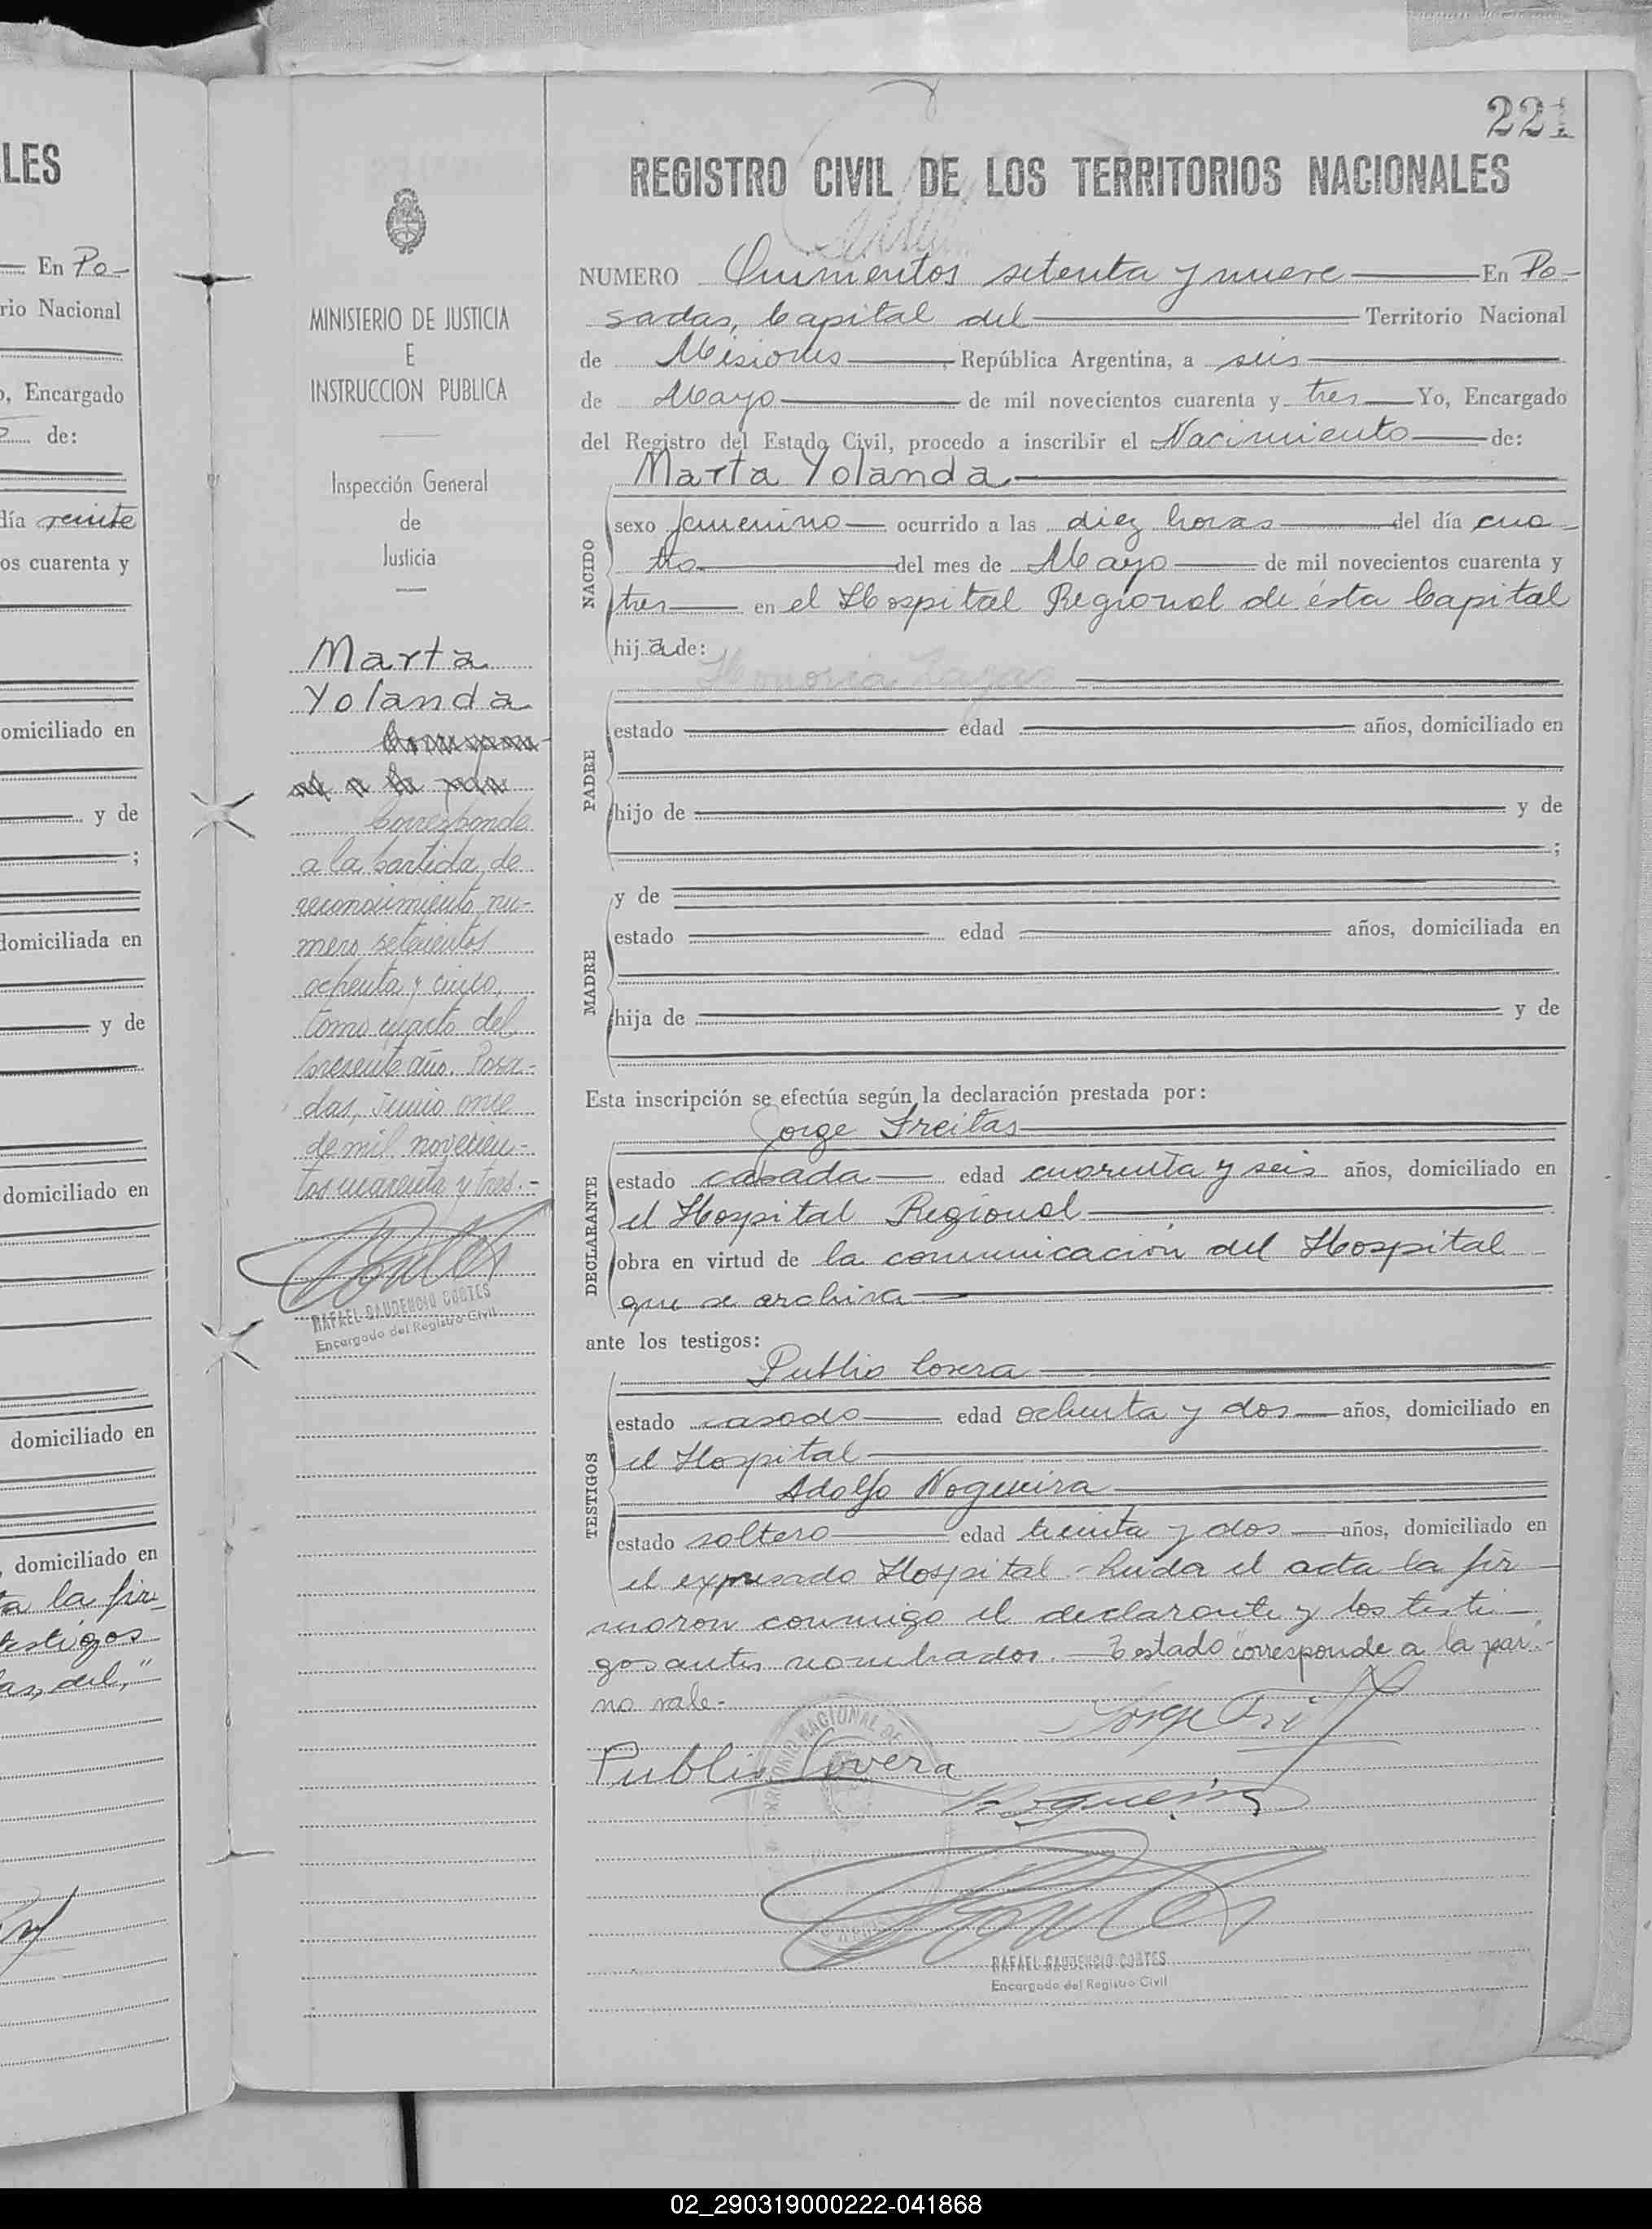 LES
En Po-
rio Nacional
o, Encargado
de:
día veinte
os cuarenta y
omiciliado en
y de
;
domiciliada en
y de
domiciliado en
domiciliado en
, domiciliado en
ta la fir-
testigos
as, del,"
MINISTERIO DE JUSTICIA
E
INSTRUCCION PUBLICA
Inspección General
de
Justicia
Marta
Yolanda
Corresponde
a la partida de
reconocimiento nu-
mero setecientos
ochenta y cinco,
tomo cuarto del
presente año. Posa-
das, Junio once
de mil novecien-
tos cuarenta y tres.-
RAFAEL GAUDENCIO CORTES
Encargado del Registro Civil
221
REGISTRO CIVIL DE LOS TERRITORIOS NACIONALES
NUMERO Quinientos setenta y nueve En Po-
sadas, Capital del Territorio Nacional
de Misiones República Argentina, a seis
de Mayo de mil novecientos cuarenta y tres Yo, Encargado
del Registro del Estado Civil, procedo a inscribir el Nacimiento de:
Marta Yolanda
NACIDO
sexo femenino ocurrido a las diez horas del día cua-
tro del mes de Mayo de mil novecientos cuarenta y
tres en el Hospital Regional de ésta Capital
hija de:
PADRE
estado edad años, domiciliado en
hijo de y de
;
MADRE
y de
estado edad años, domiciliada en
hija de y de
Esta inscripción se efectúa según la declaración prestada por:
Jorge Freitas
DECLARANTE
estado casada edad cuarenta y seis años, domiciliado en
el Hospital Regional
obra en virtud de la comunicación del Hospital
que se archiva
ante los testigos:
Publio Lovera
TESTIGOS
estado casado edad ochenta y dos años, domiciliado en
el Hospital
Adolfo Nogueira
estado soltero edad treinta y dos años, domiciliado en
el expresado Hospital.- Leida el acta la fir-
maron conmigo el declarante y los testi-
gos antes nombrados.- Testado "corresponde a la par"-
no vale-
Publio Lovera
Nogueira
RAFAEL GAUDENCIO CORTES
Encargado del Registro Civil
02_290319000222-041868